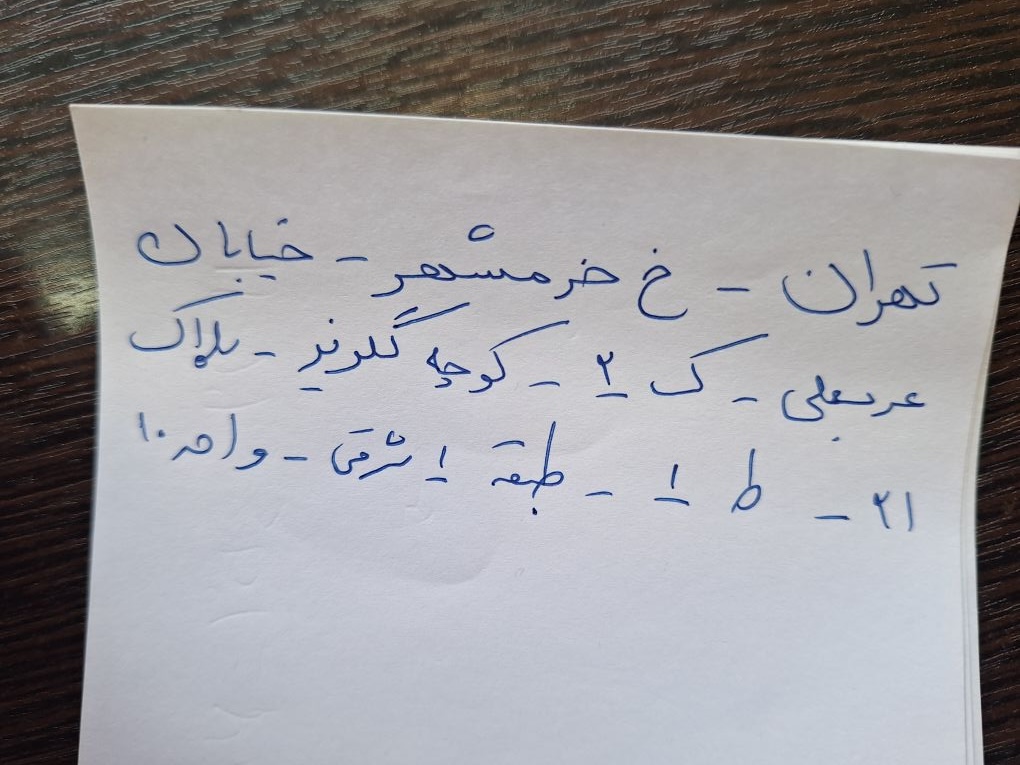 تهران - خ خرمشهر - خیابان
عربعلی - ک ۲ - کوچه گلریز - پلاک
۲۱ - ط ۱ - طبقه ۱ شرقی - واحد ۱۰